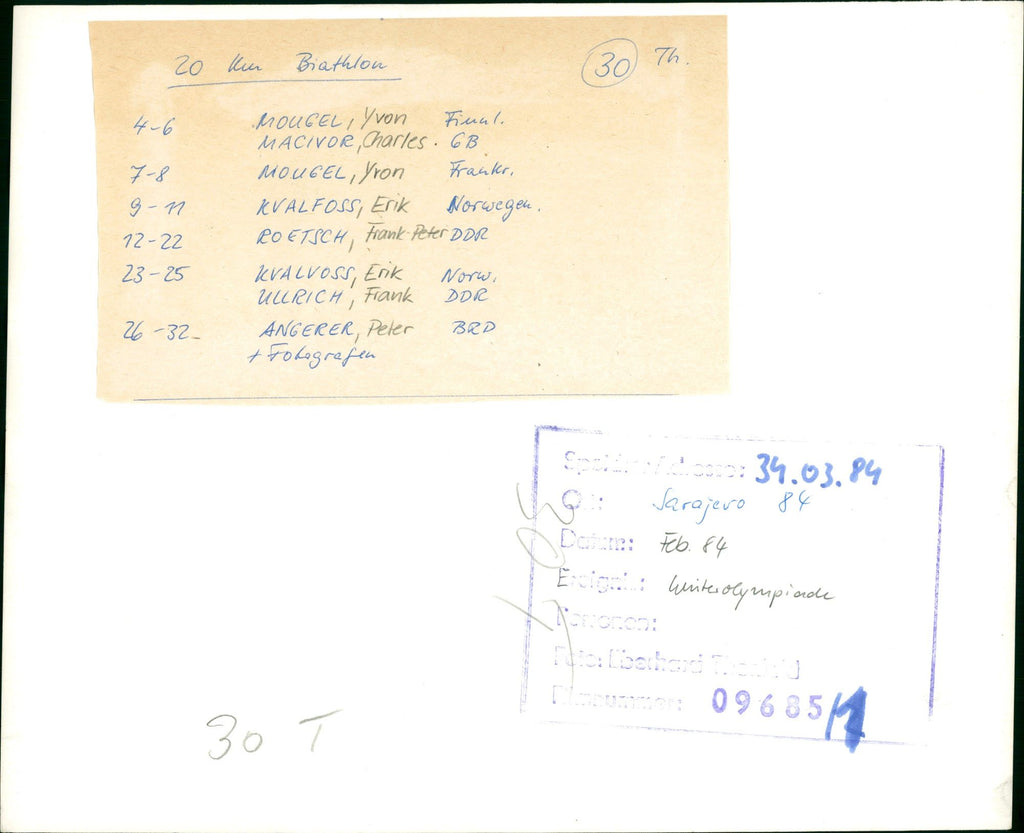 20 Km Biathlon
30 Th.
4-6 MOUGEL, Yvon Finnl.
MACIVOR, Charles. GB
7-8 MOUGEL, Yvon Frankr.
9-11 KVALFOSS, Erik Norwegen.
12-22 ROETSCH, Frank-Peter DDR
23-25 KVALVOSS, Erik Norw.
ULLRICH, Frank DDR
26-32- ANGERER, Peter BRD
+ Fotografen
34.03.84
Ort: Sarajevo 84
Datum: Feb. 84
Ereignis: Winterolympiade
Personen:
Foto: Eberhard Thonfeld
Filmnummer: 09685/1
30 T
30 T